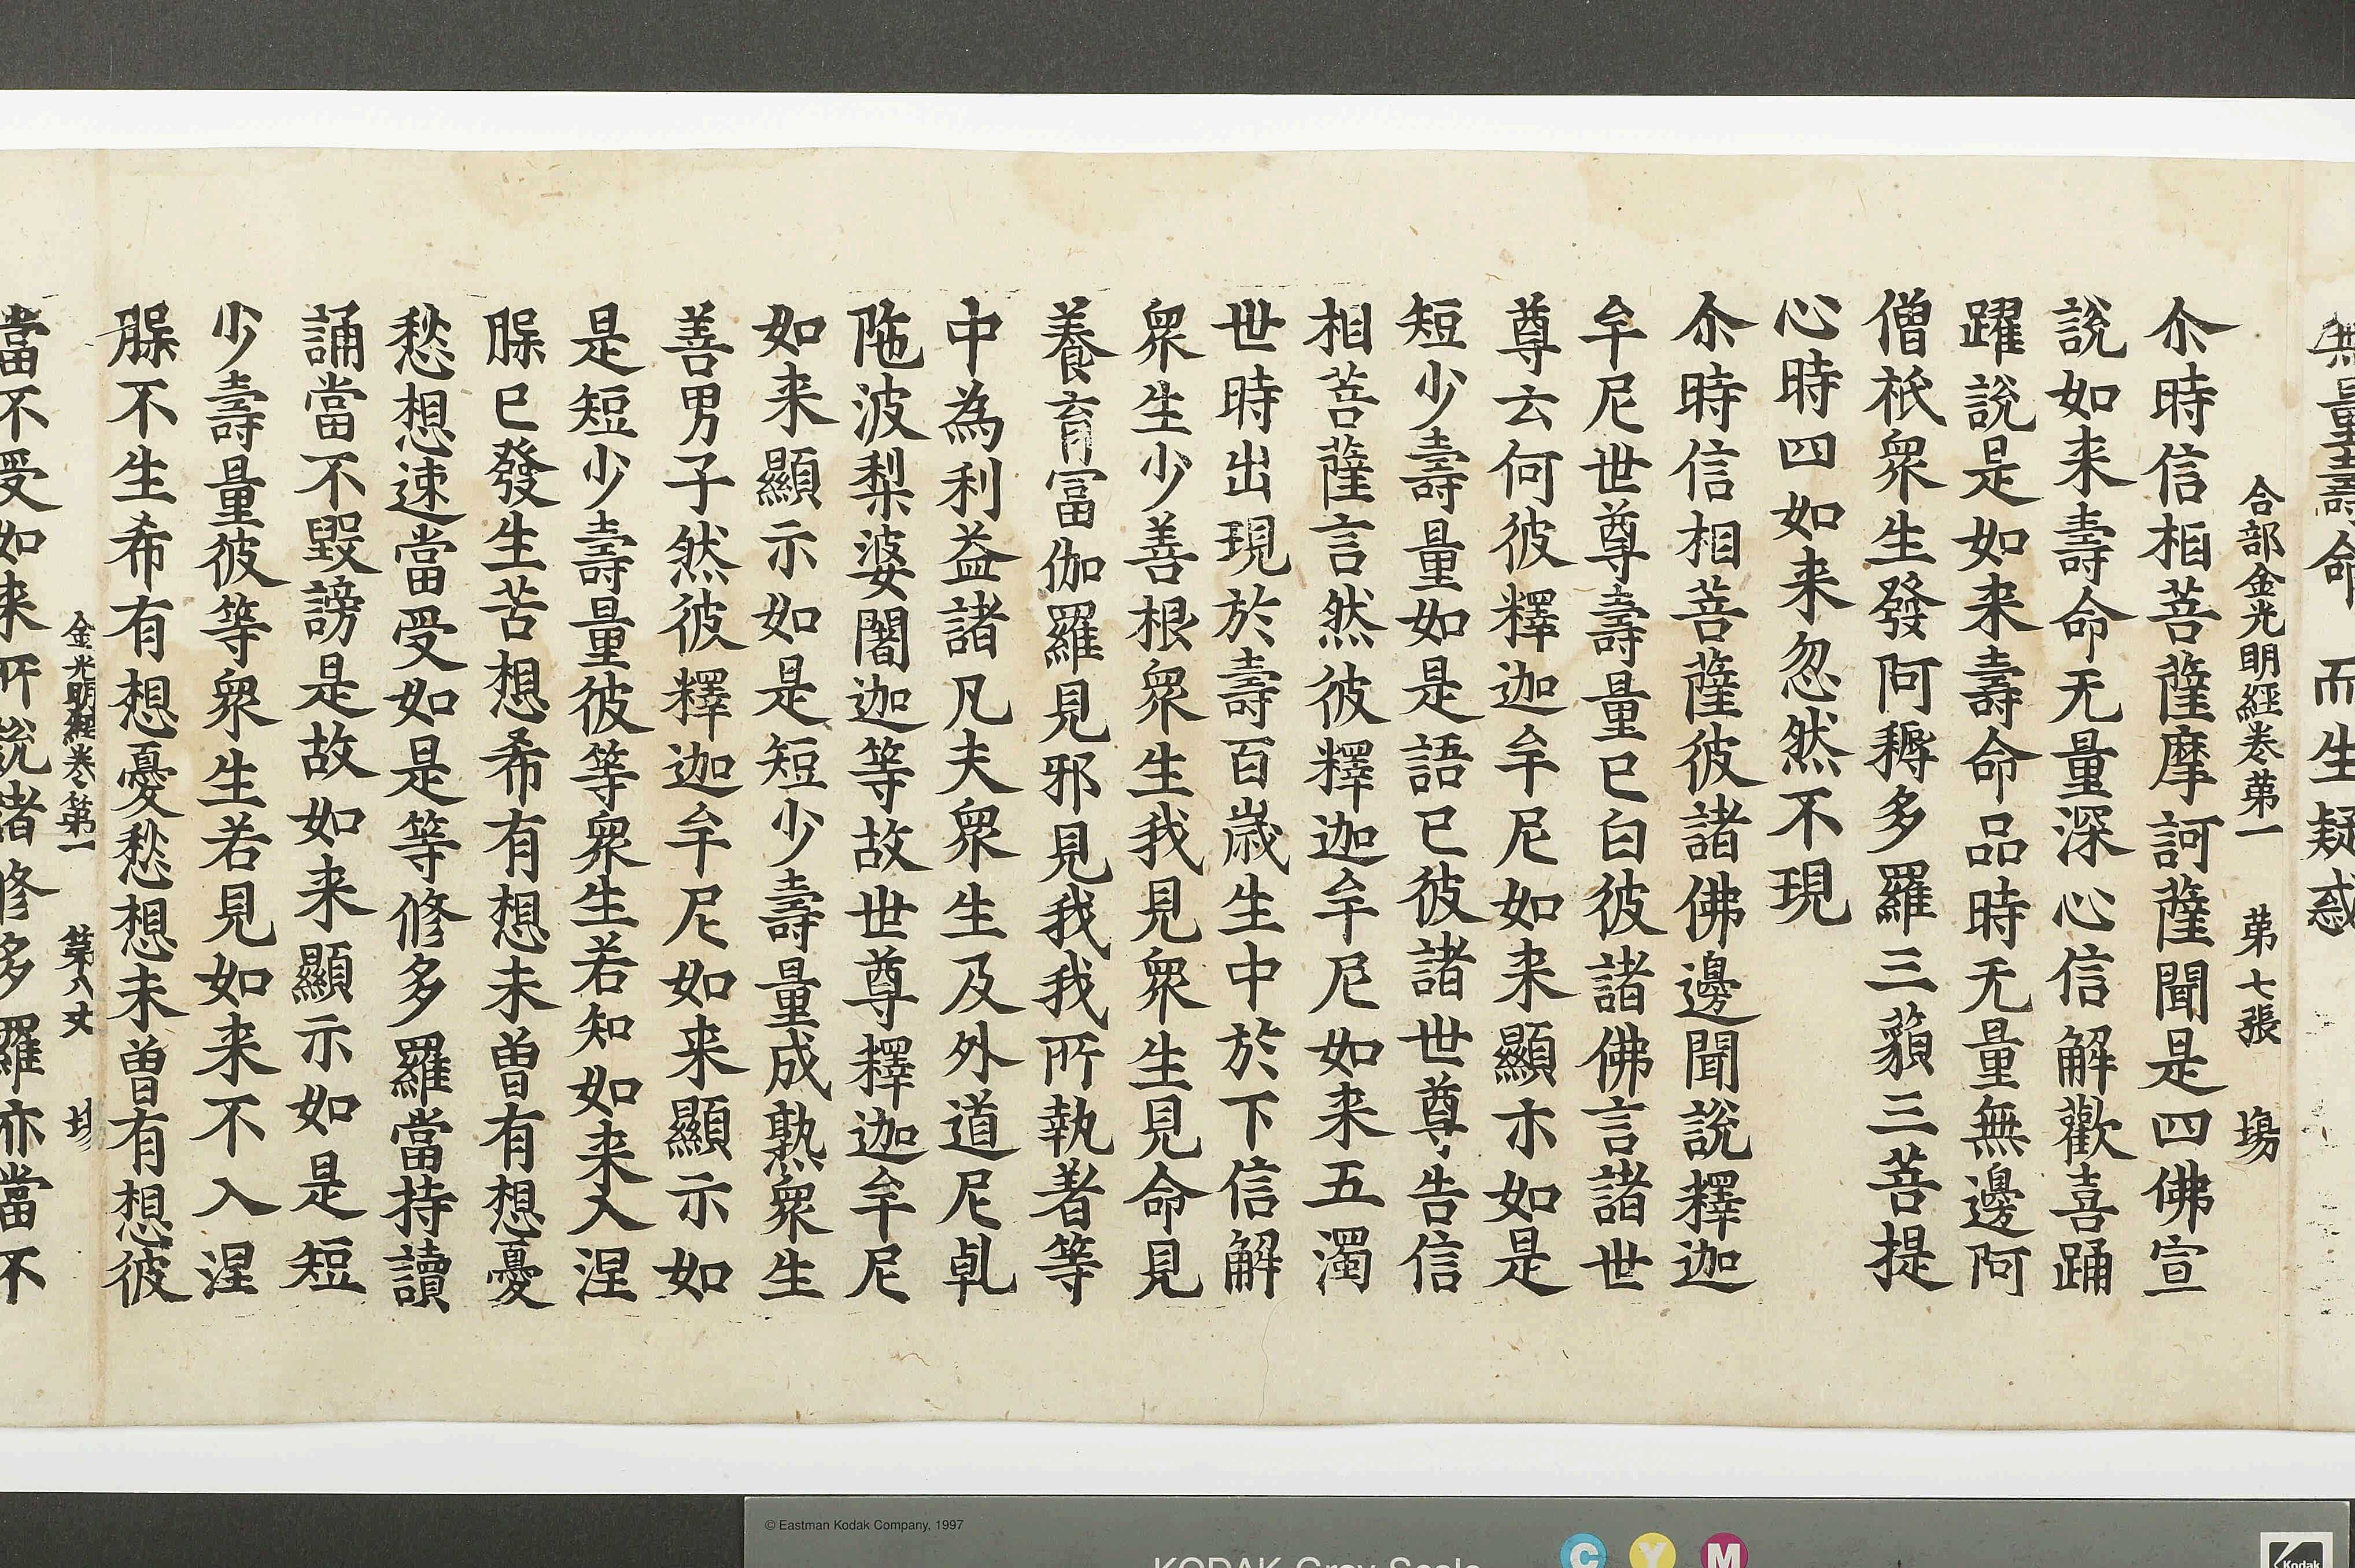 無量壽命而生疑惑
合部金光明經卷苐一 苐七張 塲
尒時信相菩薩摩訶薩聞是四佛宣
說如来壽命无量深心信解歡喜踊
躍說是如来壽命品時无量無邊阿
僧祇衆生發阿耨多羅三藐三菩提
心時四如来忽然不現
尒時信相菩薩彼諸佛邊聞說釋迦
牟尼世尊壽量已白彼諸佛言諸世
尊云何彼釋迦牟尼如来顯示如是
短少壽量如是語已彼諸世尊告信
相菩薩言然彼釋迦牟尼如来五濁
世時出現於壽百歲生中於下信解
衆生少善根衆生我見衆生見命見
養育冨伽羅見邪見我我所執著等
中為利益諸凡夫衆生及外道尼乹
陁波梨婆闍迦等故世尊釋迦牟尼
如来顯示如是短少壽量成熟衆生
善男子然彼釋迦牟尼如来顯示如
是短少壽量彼等衆生若知如来入涅
槃已發生苦想希有想未曾有想憂
愁想速當受如是等修多羅當持讀
誦當不毀謗是故如来顯示如是短
少壽量彼等衆生若見如来不入涅
槃不生希有想憂愁想未曾有想彼
金光明經卷第一 第八丈 塲
當不受如来所說諸修多羅亦當不
© Eastman Kodak Company, 1997
KODAK Gray Scale
C Y M
Kodak